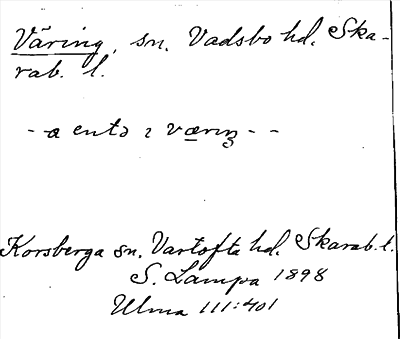 Väring, sn. Vadsbo hd. Ska-
rab. l.
- - a entə ɿ væriŋ - -
Korsberga sn. Vartofta hd. Skarab. l.
S. Lampa 1898
Ulma 111:401